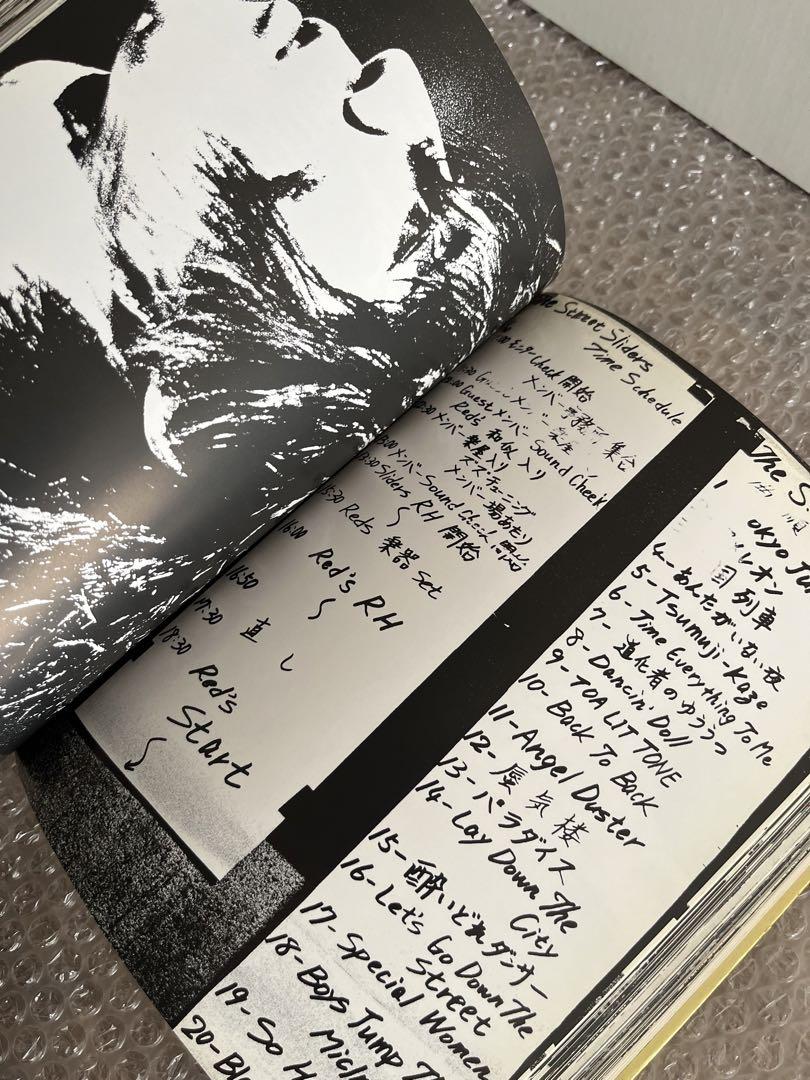 The Street Sliders
Time Schedule
Check 開始
メンバー 集合
メンバー
Guest メンバー Sound Check
Red's 入り
メンバー 楽屋入り
チューニング
メンバー
メンバー Sound Check 開始
Sliders RH 開始
15:30 Reds 楽器 Set
16:00 Red's RH
16:50
17:30 直し
18:30 Red's
Start
The S
1 okyo Ju
レオン
国列車
4- あんたがいない夜
5- Tsumuji-Kaze
6- Time Everything To Me
7- 進化者のゆううつ
8- Dancin' Doll
9- TOA LIT TONE
10- Back To Back
11- Angel Duster
12- 蜃気楼
13- パラダイス
14- Lay Down The
City
15- 酔いどれダンサー
16- Let's Go Down The
Street
17- Special Women
18- Boys Jump T
Midni
19- So H
20- Bl